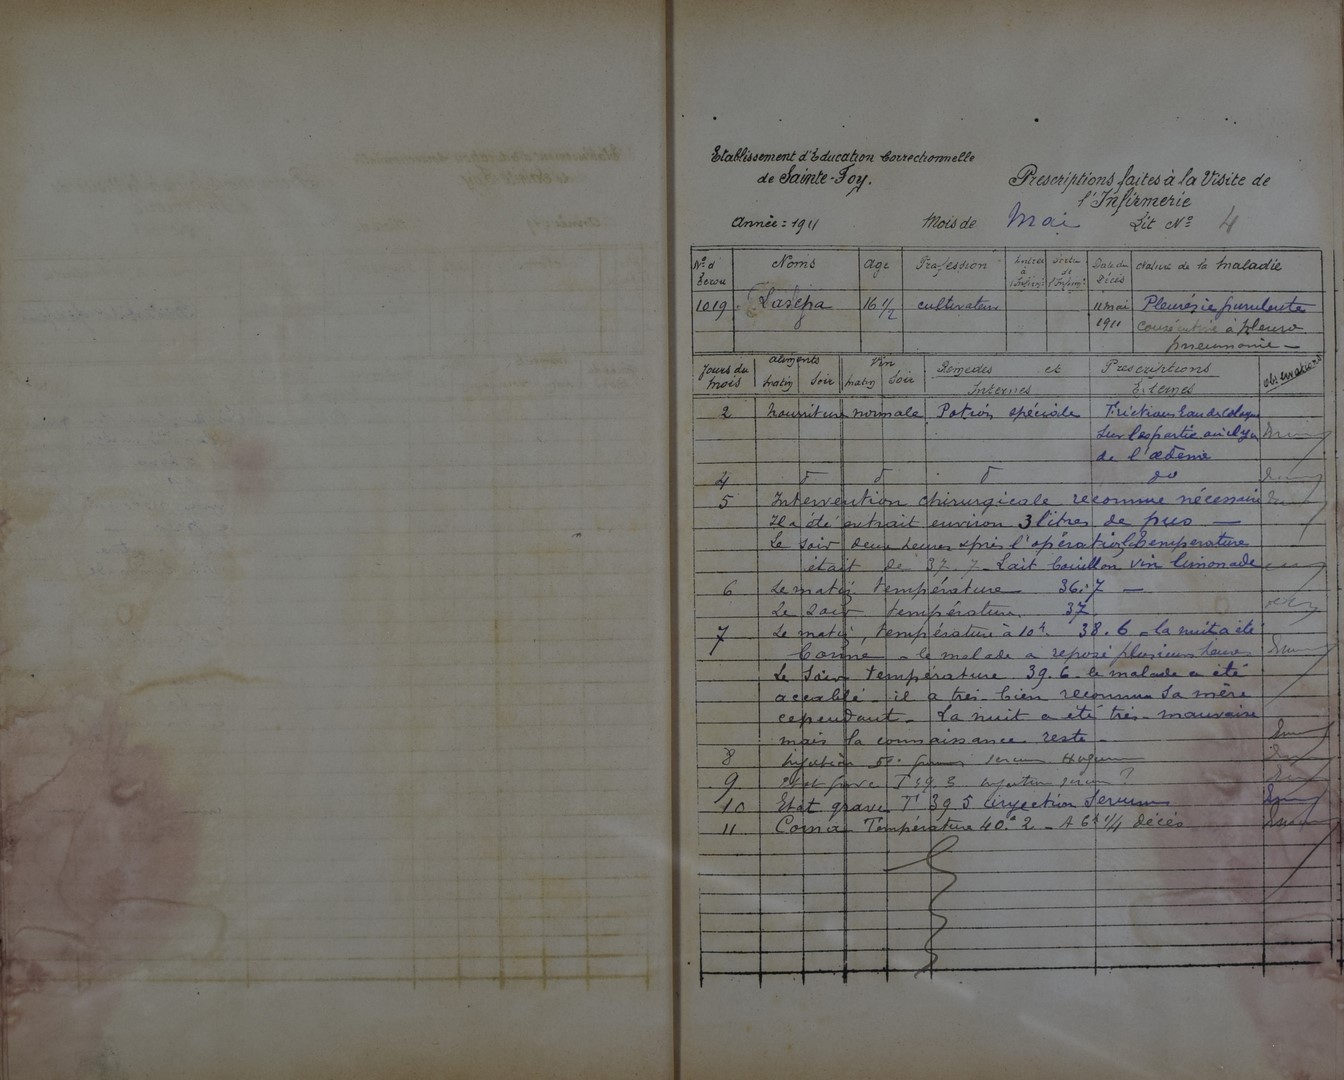 Etablissement d'Education Correctionnelle
de Sainte-Foy.
Prescriptions faites à la Visite de
l'Infirmerie
Année : 1911 Mois de Mai Lit Nº 4
Nº d' Ecrou Noms Age Profession Entrée à l'Infirm. Sortie de l'Infirm. Date du Décès Nature de la Maladie
1019 16 1/2 cultivateur 11 mai 1911 Pleurésie purulente
consécutive à pleuro
pneumonie —
Jours du Mois Aliments Matin Soir Vin Matin Soir Remèdes et Prescriptions Observations
Internes Externes
2 Nourriture normale Potion spéciale Frictions Eau de Cologne
sur les partie où il y a
de l'œdème
4 do
5 Intervention chirurgicale reconnue nécessaire
Il a été extrait environ 3 litres de pus —
Le soir deux heures après l'opération la température
était de 37. 7 - Lait bouillon vin limonade
6 Le matin température 36.7 —
Le soir température 37
7 Le matin, température à 10h. 38.6 - la nuit a été
bonne - le malade a reposé plusieurs heures
Le soir température 39.6 le malade a été
accablé - il a très bien reconnu sa mère
cependant - La nuit a été très mauvaise
mais la connaissance reste -
8 Injection serum
9 Etat grave T 39 3 injection serum ?
10 Etat grave T° 39 5 injection Serum
11 Coma Température 40.° 2 - A 6h 1/4 décès